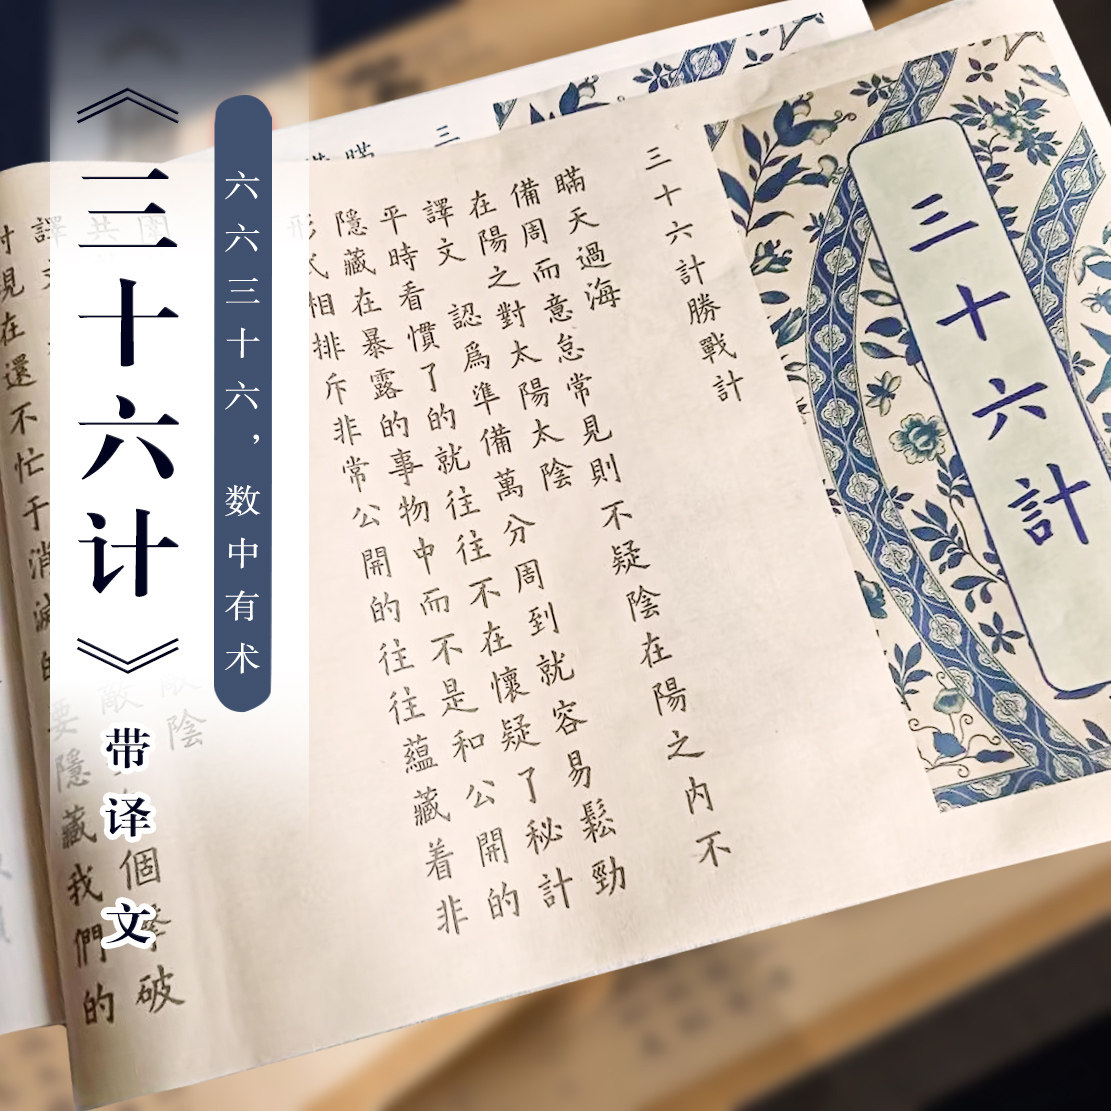 《三十六计》
六六三十六，数中有术
带译文
三十六計
三十六計勝戰計
瞞天過海
備周而意怠常見則不疑陰在陽之内不
在陽之對太陽太陰
譯文　認爲準備萬分周到就容易鬆勁
平時看慣了的就往往不在懷疑了秘計
隱藏在暴露的事物中而不是和公開的
形式相排斥非常公開的往往蘊藏着非
敵陰
個擊破
要隱藏我們的
現在還不忙于消滅的